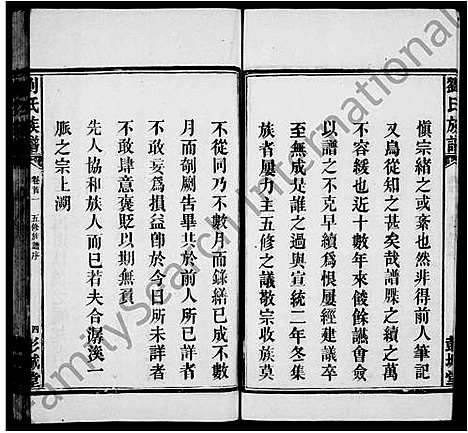 劉氏族譜
慎宗緒之或紊也然非得前人筆記
又烏從知之甚矣哉譜牒之續之萬
不容緩也近十數年來餕餘讌會僉
以譜之不克早續爲恨屢經建議卒
至無成是誰之過與宣統二年冬集
族者屢力主五修之議敬宗收族莫
彭城堂
不從同乃不數月而錄繕已成不數
月而剞劂告畢其於前人所已詳者
不敢妄爲損益卽於今日所未詳者
不敢肆意褒貶以期無負
先人協和族人而已若夫合潺溪一
脈之宗上湖
劉氏族譜
卷首一
五修族譜序
四
彭城堂
FamilySearch International